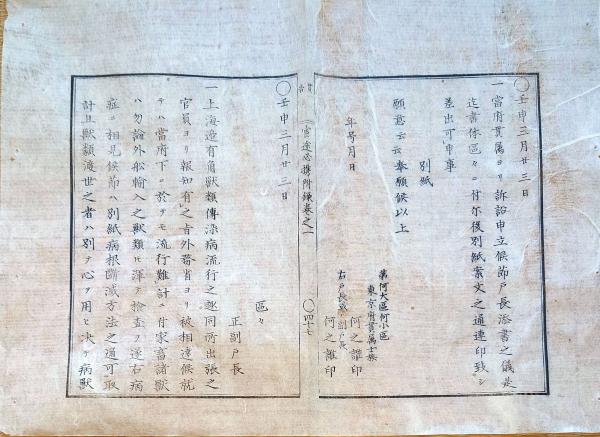 〇壬申三月廿三日
一當府貫属ヨリ訴訟申立候節戸長添書之儀是
迄書体區々ニ付尓後別紙案文之通連印致シ
差出可申事
別紙
願意云云奉願候以上
年号月日
第何大區何小區
東京府貫属士族
何之誰印
右戸長或ハ副戸長
何之誰印
官途必携附録巻之一
〇四十七
〇壬申三月廿三日
區々
正副戸長
一上海邉有角獣類傳染病流行之趣同所出張之
官員ヨリ報知有之旨外務省ヨリ被相達候就
テハ當府下ニ於テモ流行難計ニ付家畜諸獣
ハ勿論外舩輸入之獣類ヒ渾テ検査ヲ遂右病
症ニ相見候節ハ別紙病根断滅方法之通可取
計且獣類渡世之者ハ別テ心ヲ用ヒ決テ病獣